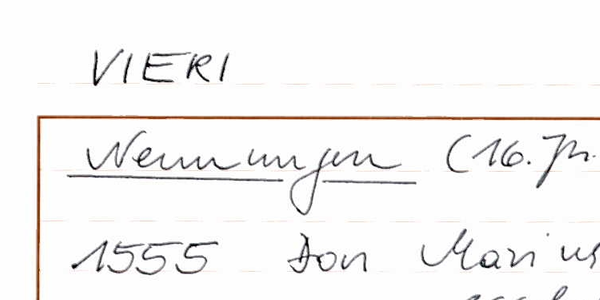 VIERI
Nennungen (16. Jh.
1555 Don Marius